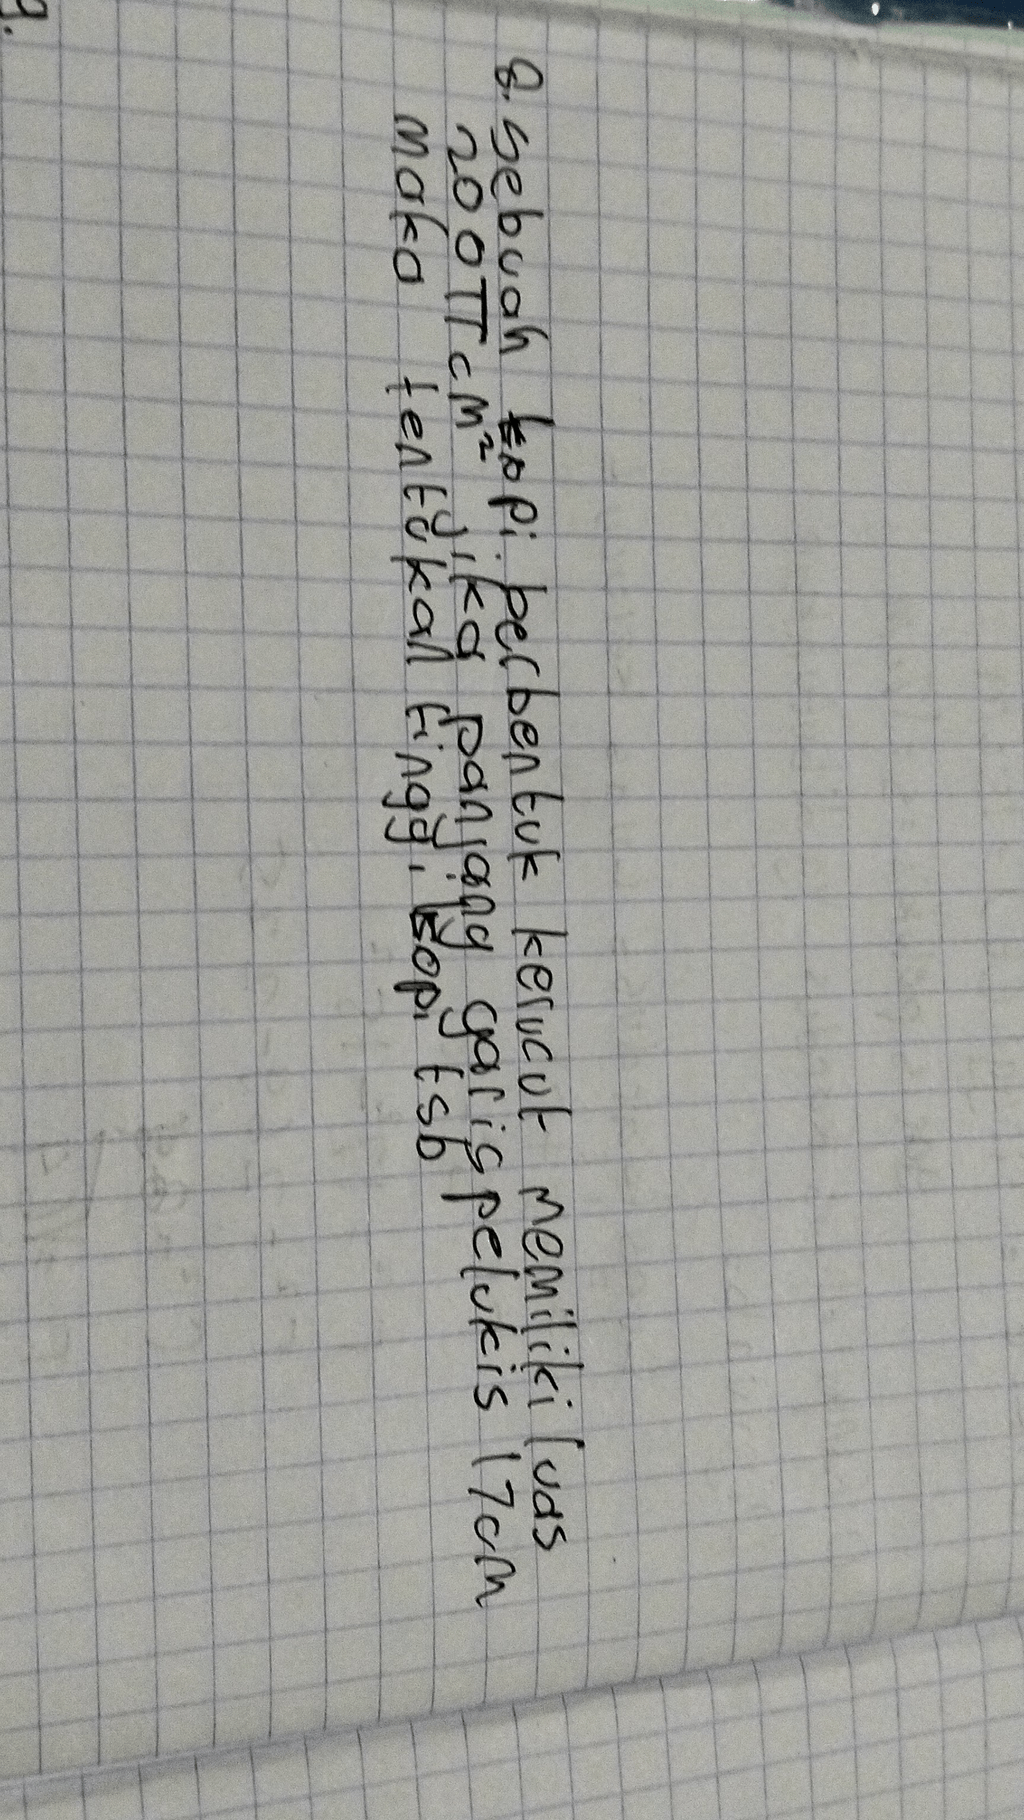 8. Sebuah topi berbentuk kerucut memiliki luas
200π cm² jika panjang garis pelukis 17cm
maka tentukan tinggi topi tsb
9.